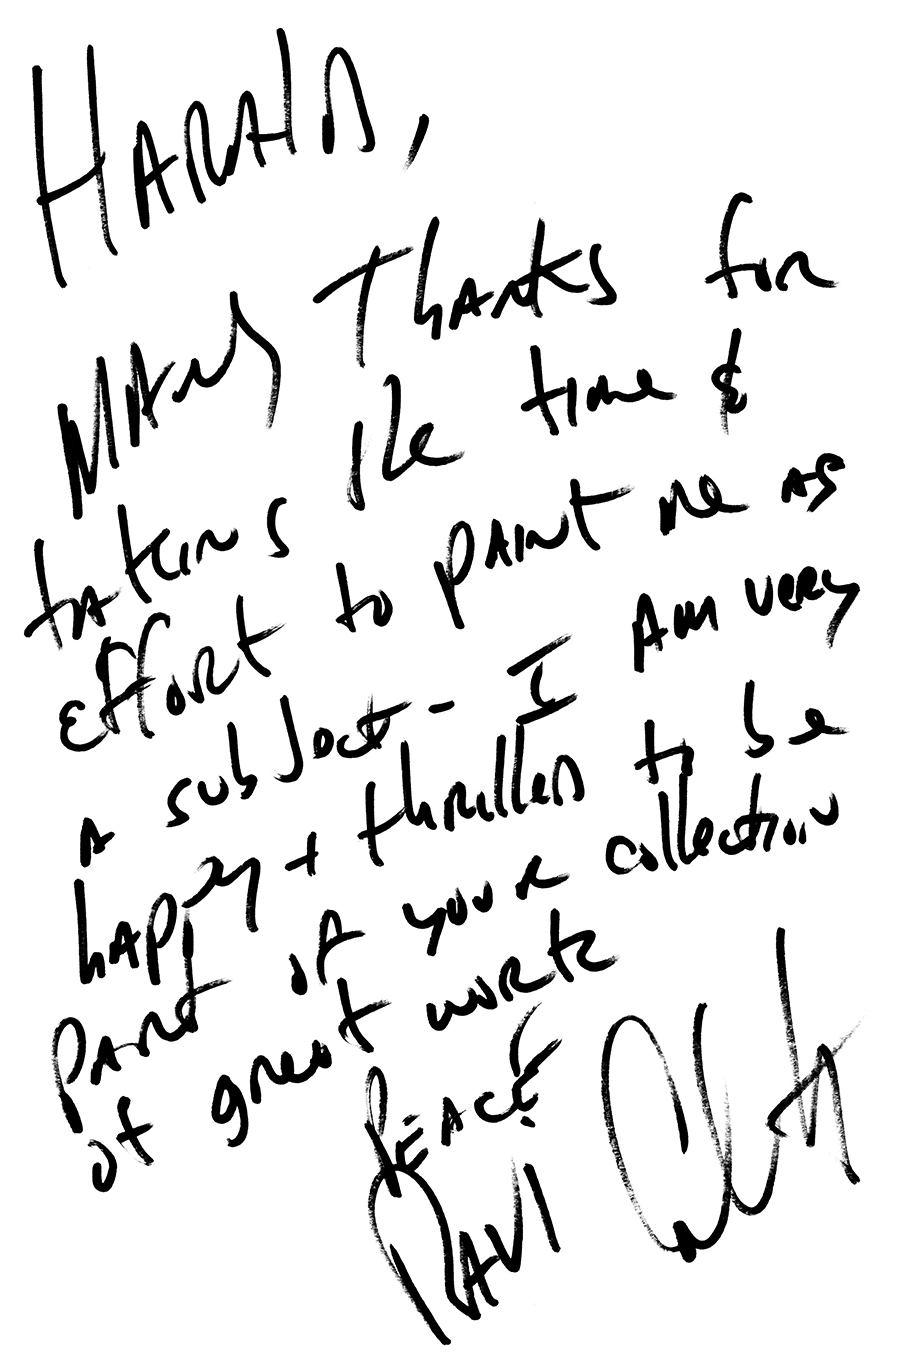 HARAlD,
MANy ThANks for
tAkiNG the time &
effort to pAiNt me AS
A subject - I AM very
hAppy + thrilled to be
pArt of your collection
of great work
PEACE
RAVI